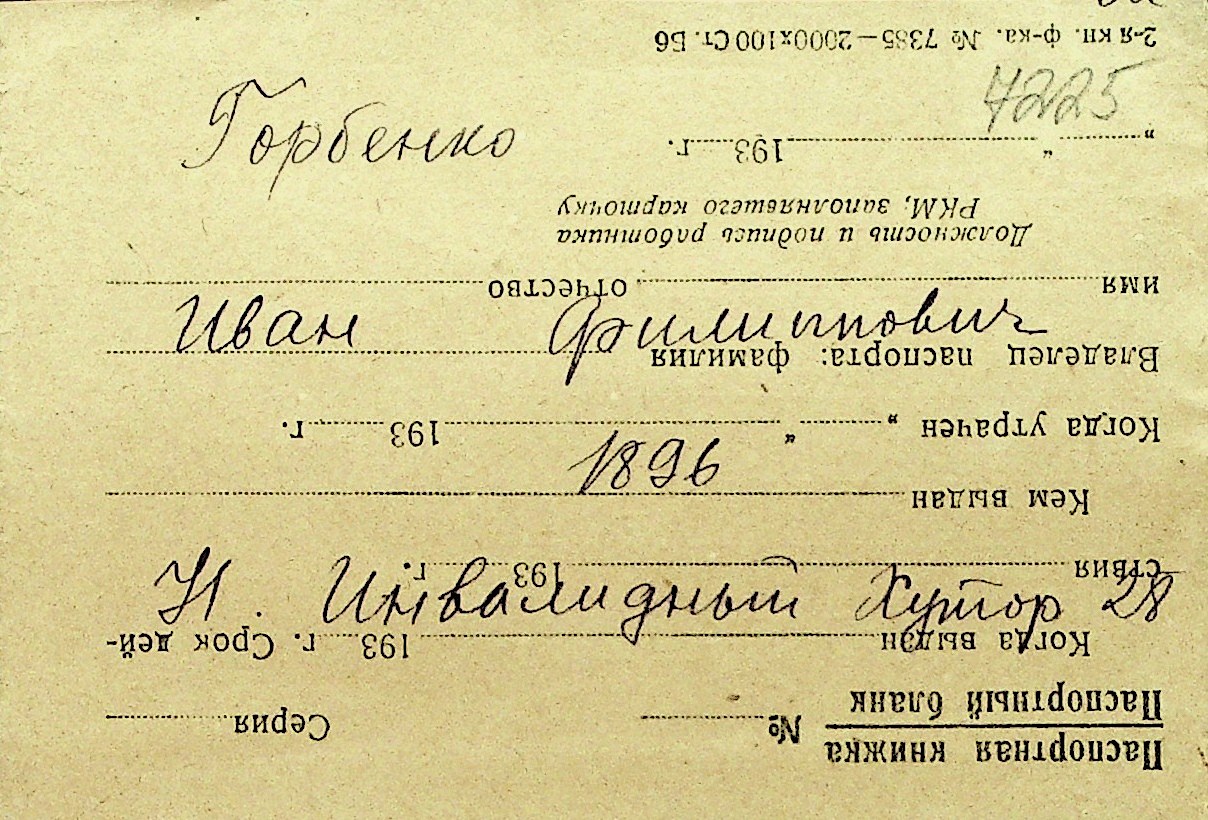 Горбенко
4225
Иван Филиппович
1896
Н. Инвалидный Хутор 28
Паспортная книжка
Паспортный бланк № Серия
Когда выдан 193 г. Срок дей-
ствия 193 г.
Кем выдан
Когда утрачен „ “ 193 г.
Владелец паспорта: фамилия
имя отчество
Должность и подпись работника
РКМ, заполнявшего карточку
„ “ 193 г.
2-я кн. ф-ка. № 7385—2000х100 Ст. Б6